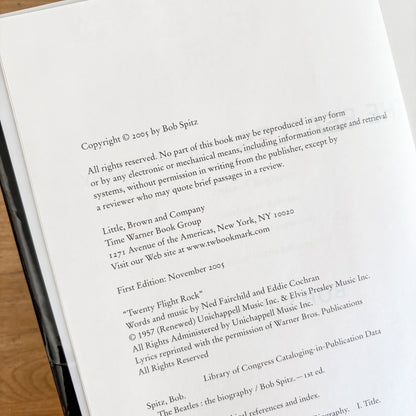 Copyright © 2005 by Bob Spitz
All rights reserved. No part of this book may be reproduced in any form
or by any electronic or mechanical means, including information storage and retrieval
systems, without permission in writing from the publisher, except by
a reviewer who may quote brief passages in a review.
Little, Brown and Company
Time Warner Book Group
1271 Avenue of the Americas, New York, NY 10020
Visit our Web site at www.twbookmark.com
First Edition: November 2005
"Twenty Flight Rock"
Words and music by Ned Fairchild and Eddie Cochran
© 1957 (Renewed) Unichappell Music Inc. & Elvis Presley Music Inc.
All Rights Administered by Unichappell Music Inc.
Lyrics reprinted with the permission of Warner Bros. Publications
All Rights Reserved
Library of Congress Cataloging-in-Publication Data
Spitz, Bob.
The Beatles : the biography / Bob Spitz.—1st ed.
references and index.
I. Title.